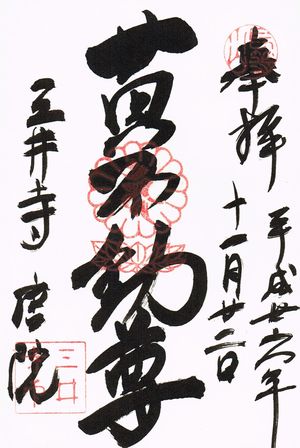 奉拝
平成廿六年
十一月廿二日
黄不動尊
三井寺 唐院